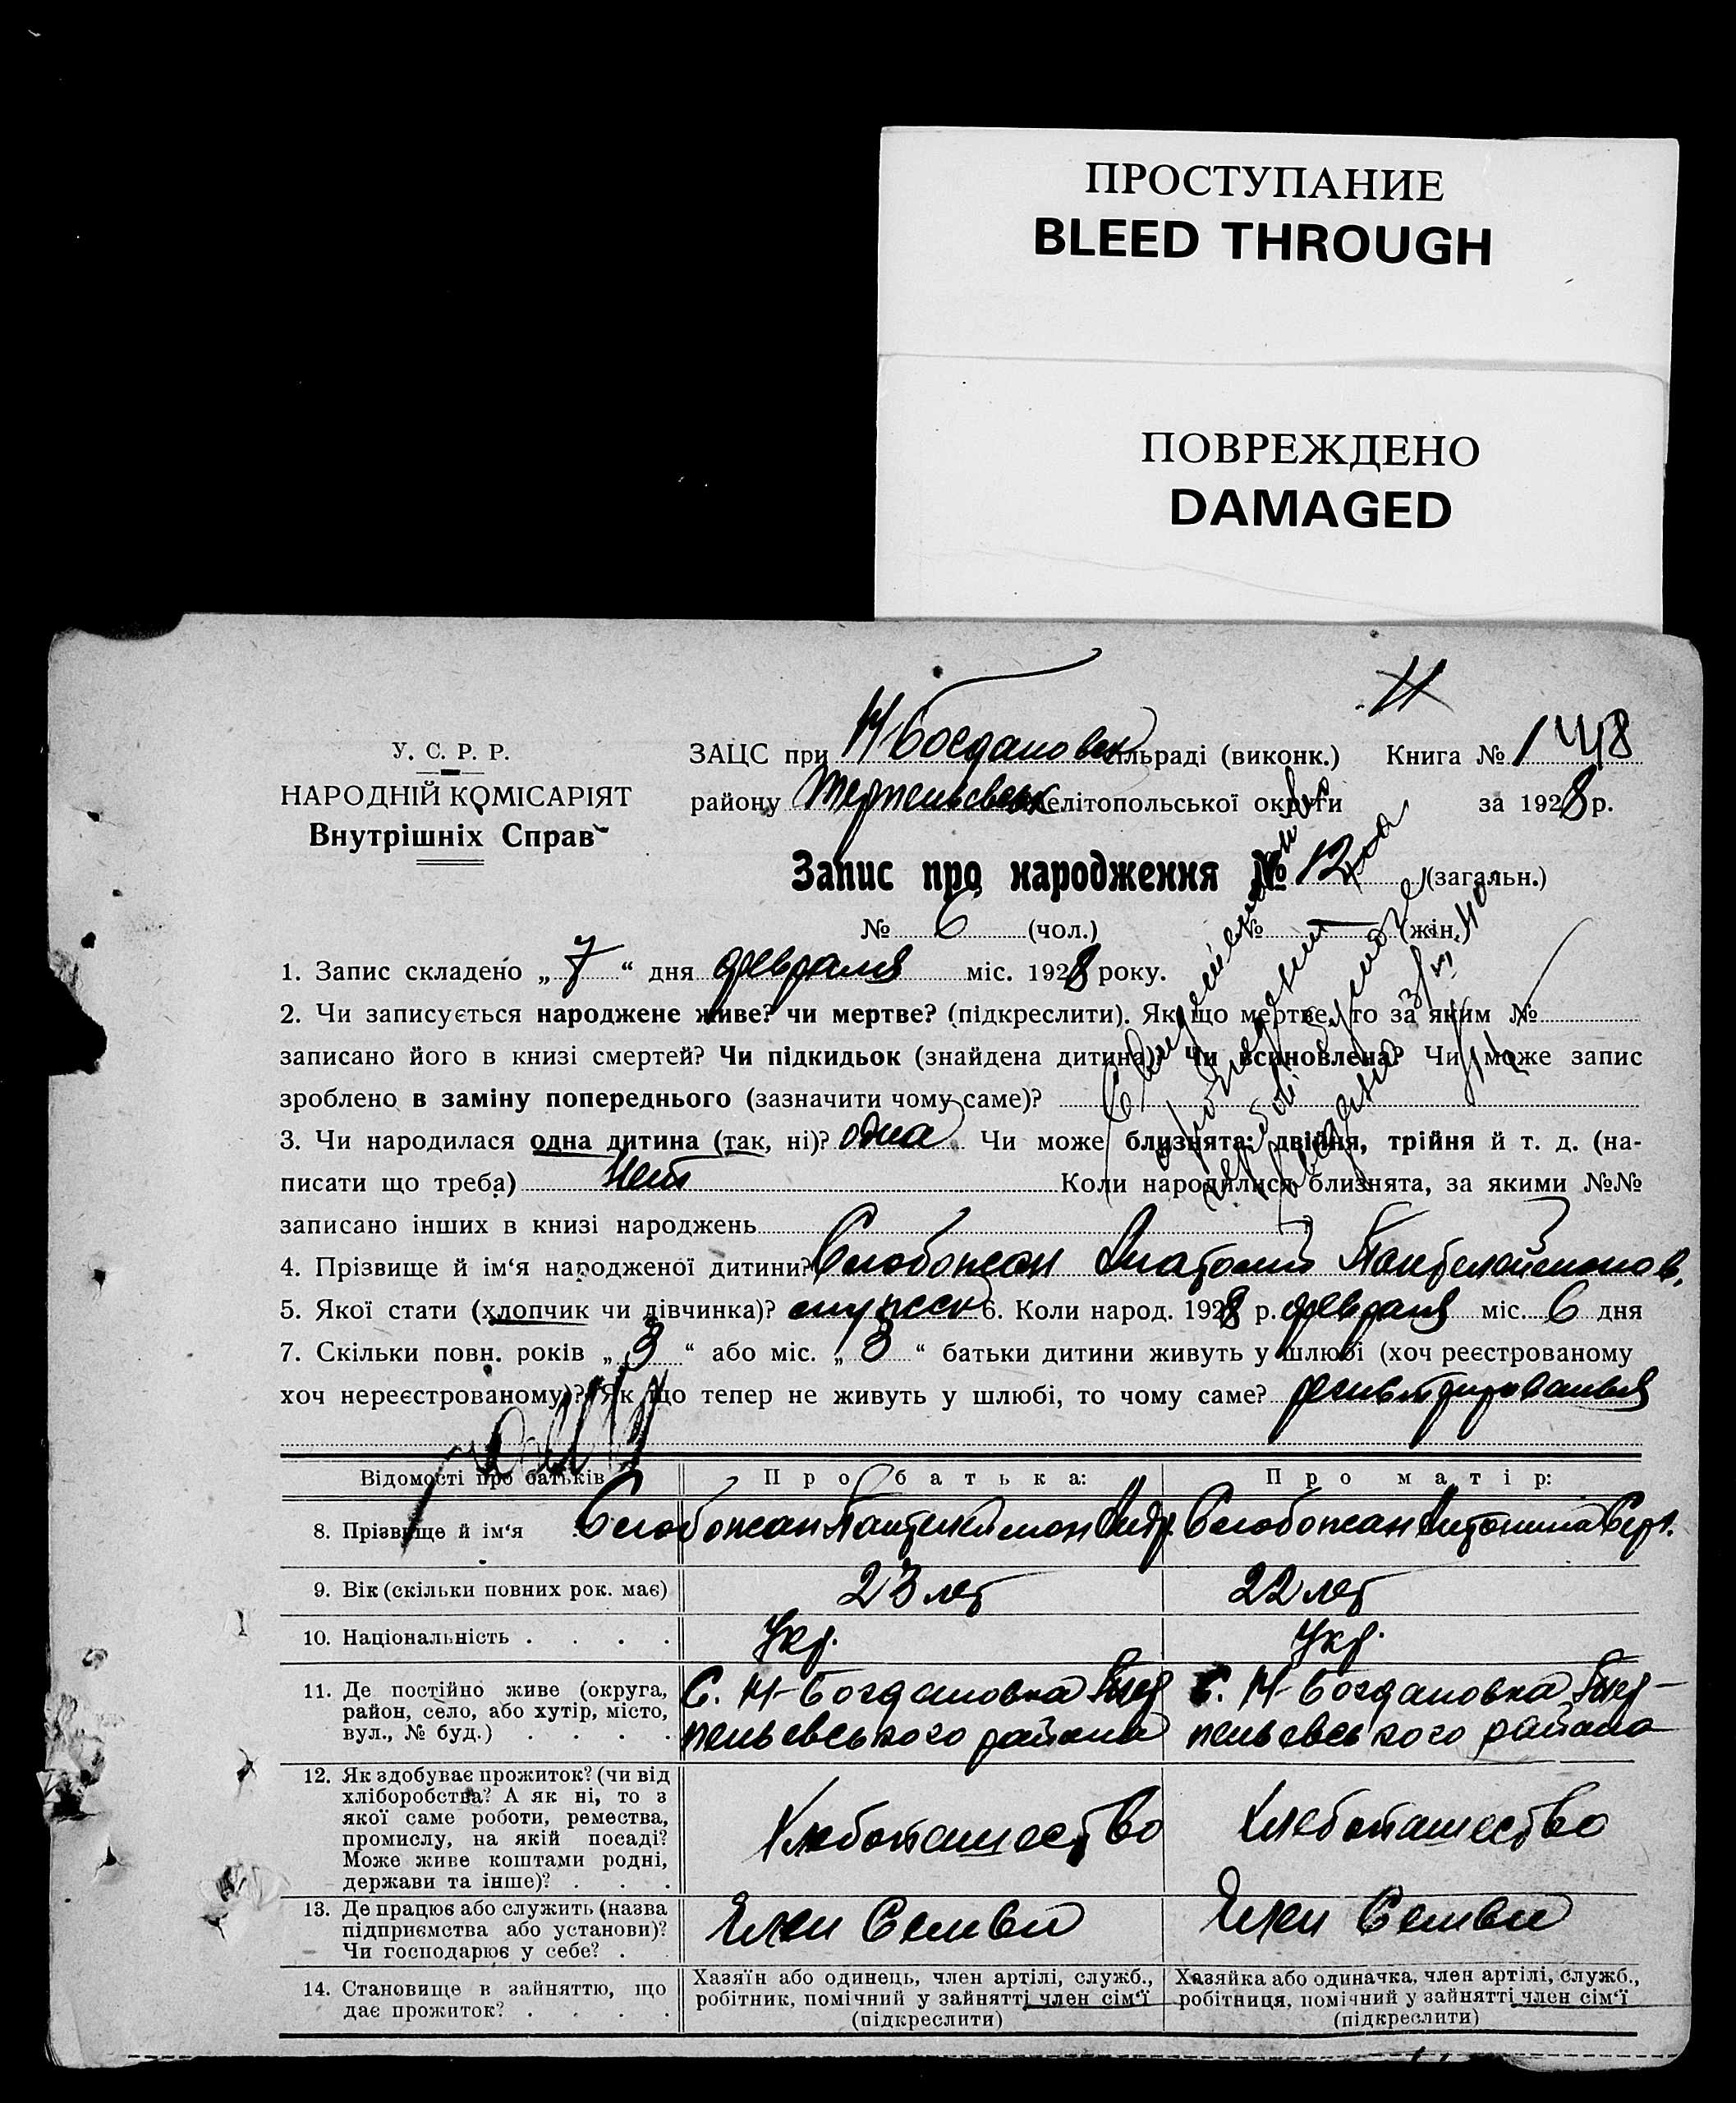 ПРОСТУПАНИЕ
BLEED THROUGH
ПОВРЕЖДЕНО
DAMAGED
11
У. С. Р. Р.
НАРОДНІЙ КОМІСАРІЯТ
Внутрішніх Справ
ЗАЦС при Н Богдановск ільраді (виконк.) Книга № 1
району Терпеньевськ елітопольської округи за 1928 р.
Запис про народження № 12 (загальн.)
№ 6 (чол.) № — (жін.)
1. Запис складено „ 7 “ дня февраля міс. 1928 року.
2. Чи записується народжене живе? чи мертве? (підкреслити). Як що мертве, то за яким №
записано його в книзі смертей? Чи підкидьок (знайдена дитина)? Чи всиновлена? Чи може запис
зроблено в заміну попереднього (зазначити чому саме)?
3. Чи народилася одна дитина (так, ні)? одна Чи може близнята: двійня, трійня й т. д. (на-
писати що треба) Нет Коли народилися близнята, за якими №№
записано інших в книзі народжень
4. Прізвище й ім‘я народженої дитини? Слобожан Анатолий
5. Якої стати (хлопчик чи дівчинка)? мужеск 6. Коли народ. 1928 р. февраля міс. 6 дня
7. Скільки повн. років „ 3 “ або міс. „ 3 “ батьки дитини живуть у шлюбі (хоч реєстрованому
хоч нереєстрованому)? Як що тепер не живуть у шлюбі, то чому саме?
Відомості про батьків Про батька: Про матір:
8. Прізвище й ім‘я Слобожан Пантилимон Андр. Слобожан Антонина Серг.
9. Вік (скільки повних рок. має) 23 лет 22 лет
10. Національність . . . . Укр. Укр.
11. Де постійно живе (округа, район, село, або хутір, місто, вул., № буд.) . . . .
С. Н-Богдановка Тер
пеньевського района
С. Н-Богдановка Тер-
пеньевского района
12. Як здобуває прожиток? (чи від
хліборобства? А як ні, то з
якої саме роботи, ремества,
промислу, на якій посаді?
Може живе коштами родні,
держави та інше)? . . .
Хлебопашество Хлебопашество
13. Де працює або служить (назва
підприємства або установи)?
Чи господарює у себе? . .
Член Семьи Член Семьи
14. Становище в зайняттю, що
дає прожиток? . . . .
Хазяїн або одинець, член артілі, служб.,
робітник, помічний у зайнятті член сім‘ї
(підкреслити)
Хазяйка або одиначка, член артілі, служб.,
робітниця, помічний у зайнятті член сім‘ї
(підкреслити)